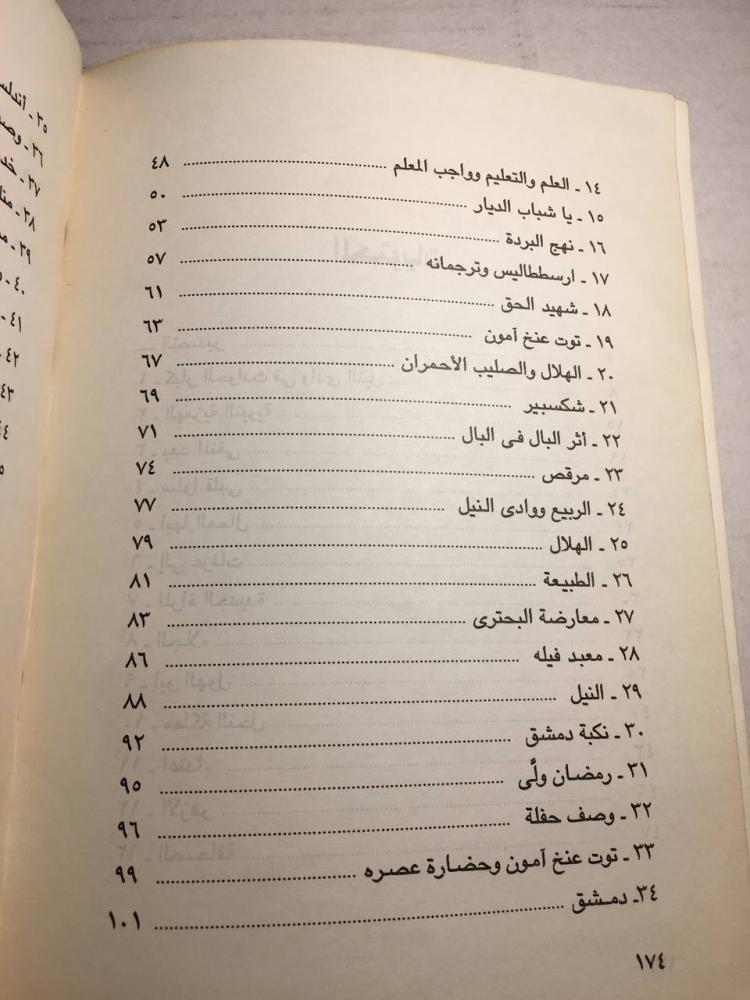 ١٤ ـ العلم والتعليم وواجب المعلم ........................ ٤٨
١٥ ـ يا شباب الديار ........................ ٥٠
١٦ ـ نهج البردة ........................ ٥٣
١٧ ـ ارسططاليس وترجمانه ........................ ٥٧
١٨ ـ شهيد الحق ........................ ٦١
١٩ ـ توت عنخ آمون ........................ ٦٣
٢٠ ـ الهلال والصليب الأحمران ........................ ٦٧
٢١ ـ شكسبير ........................ ٦٩
٢٢ ـ أثر البال فى البال ........................ ٧١
٢٣ ـ مرقص ........................ ٧٤
٢٤ ـ الربيع ووادى النيل ........................ ٧٧
٢٥ ـ الهلال ........................ ٧٩
٢٦ ـ الطبيعة ........................ ٨١
٢٧ ـ معارضة البحترى ........................ ٨٣
٢٨ ـ معبد فيله ........................ ٨٦
٢٩ ـ النيل ........................ ٨٨
٣٠ ـ نكبة دمشق ........................ ٩٢
٣١ ـ رمضان ولَّى ........................ ٩٥
٣٢ ـ وصف حفلة ........................ ٩٦
٣٣ ـ توت عنخ آمون وحضارة عصره ........................ ٩٩
٣٤ـ دمشق ........................ ١٠١
١٧٤
٣٥ ـ
٣٦ ـ
٣٧ ـ
٣٨ ـ
٣٩ ـ
٤٠ ـ
٤١ ـ
٤٢
٤٣
٤٤